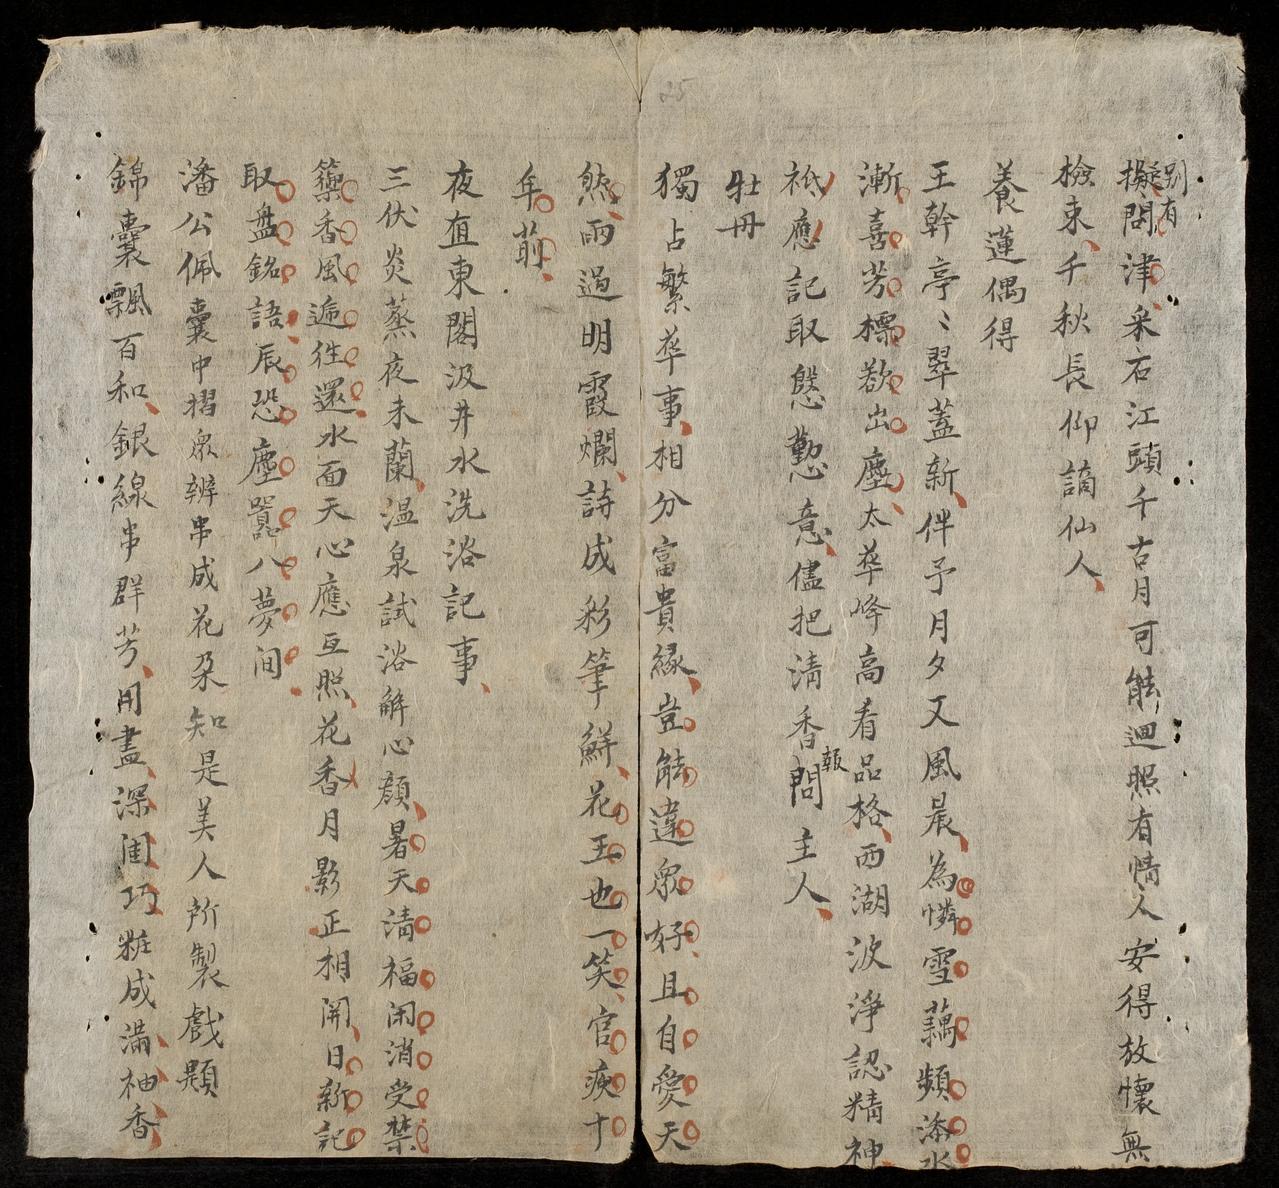 擬問津采石江頭千古月可能迴照有情人安得放懷無
別有
檢束千秋長仰謫仙人
養蓮偶得
王幹亭〻翠蓋新伴予月夕又風晨為憐雪藕頻添水
漸喜芳標欲出塵太華峰高看品格西湖波淨認精神
祇應記取慇懃意儘把清香問主人
報
牡丹
獨占繁華事相分富貴緣豈能違眾好且自愛天
然雨過明霞爛詩成彩筆鮮花王也一笑官瘐十
年前
夜直東閣汲井水洗浴記事
三伏炎蒸夜未蘭温泉試浴解心顏暑天清福閑消受禁
籞香風遞徃還水面天心應互照花香月影正相開日新記
取盤銘語辰恐塵囂入夢间
潘公佩囊中摺扇辨串成花朵知是美人所製戲題
錦囊飄百和銀線串群芳用盡深閨巧粧成滿袖香